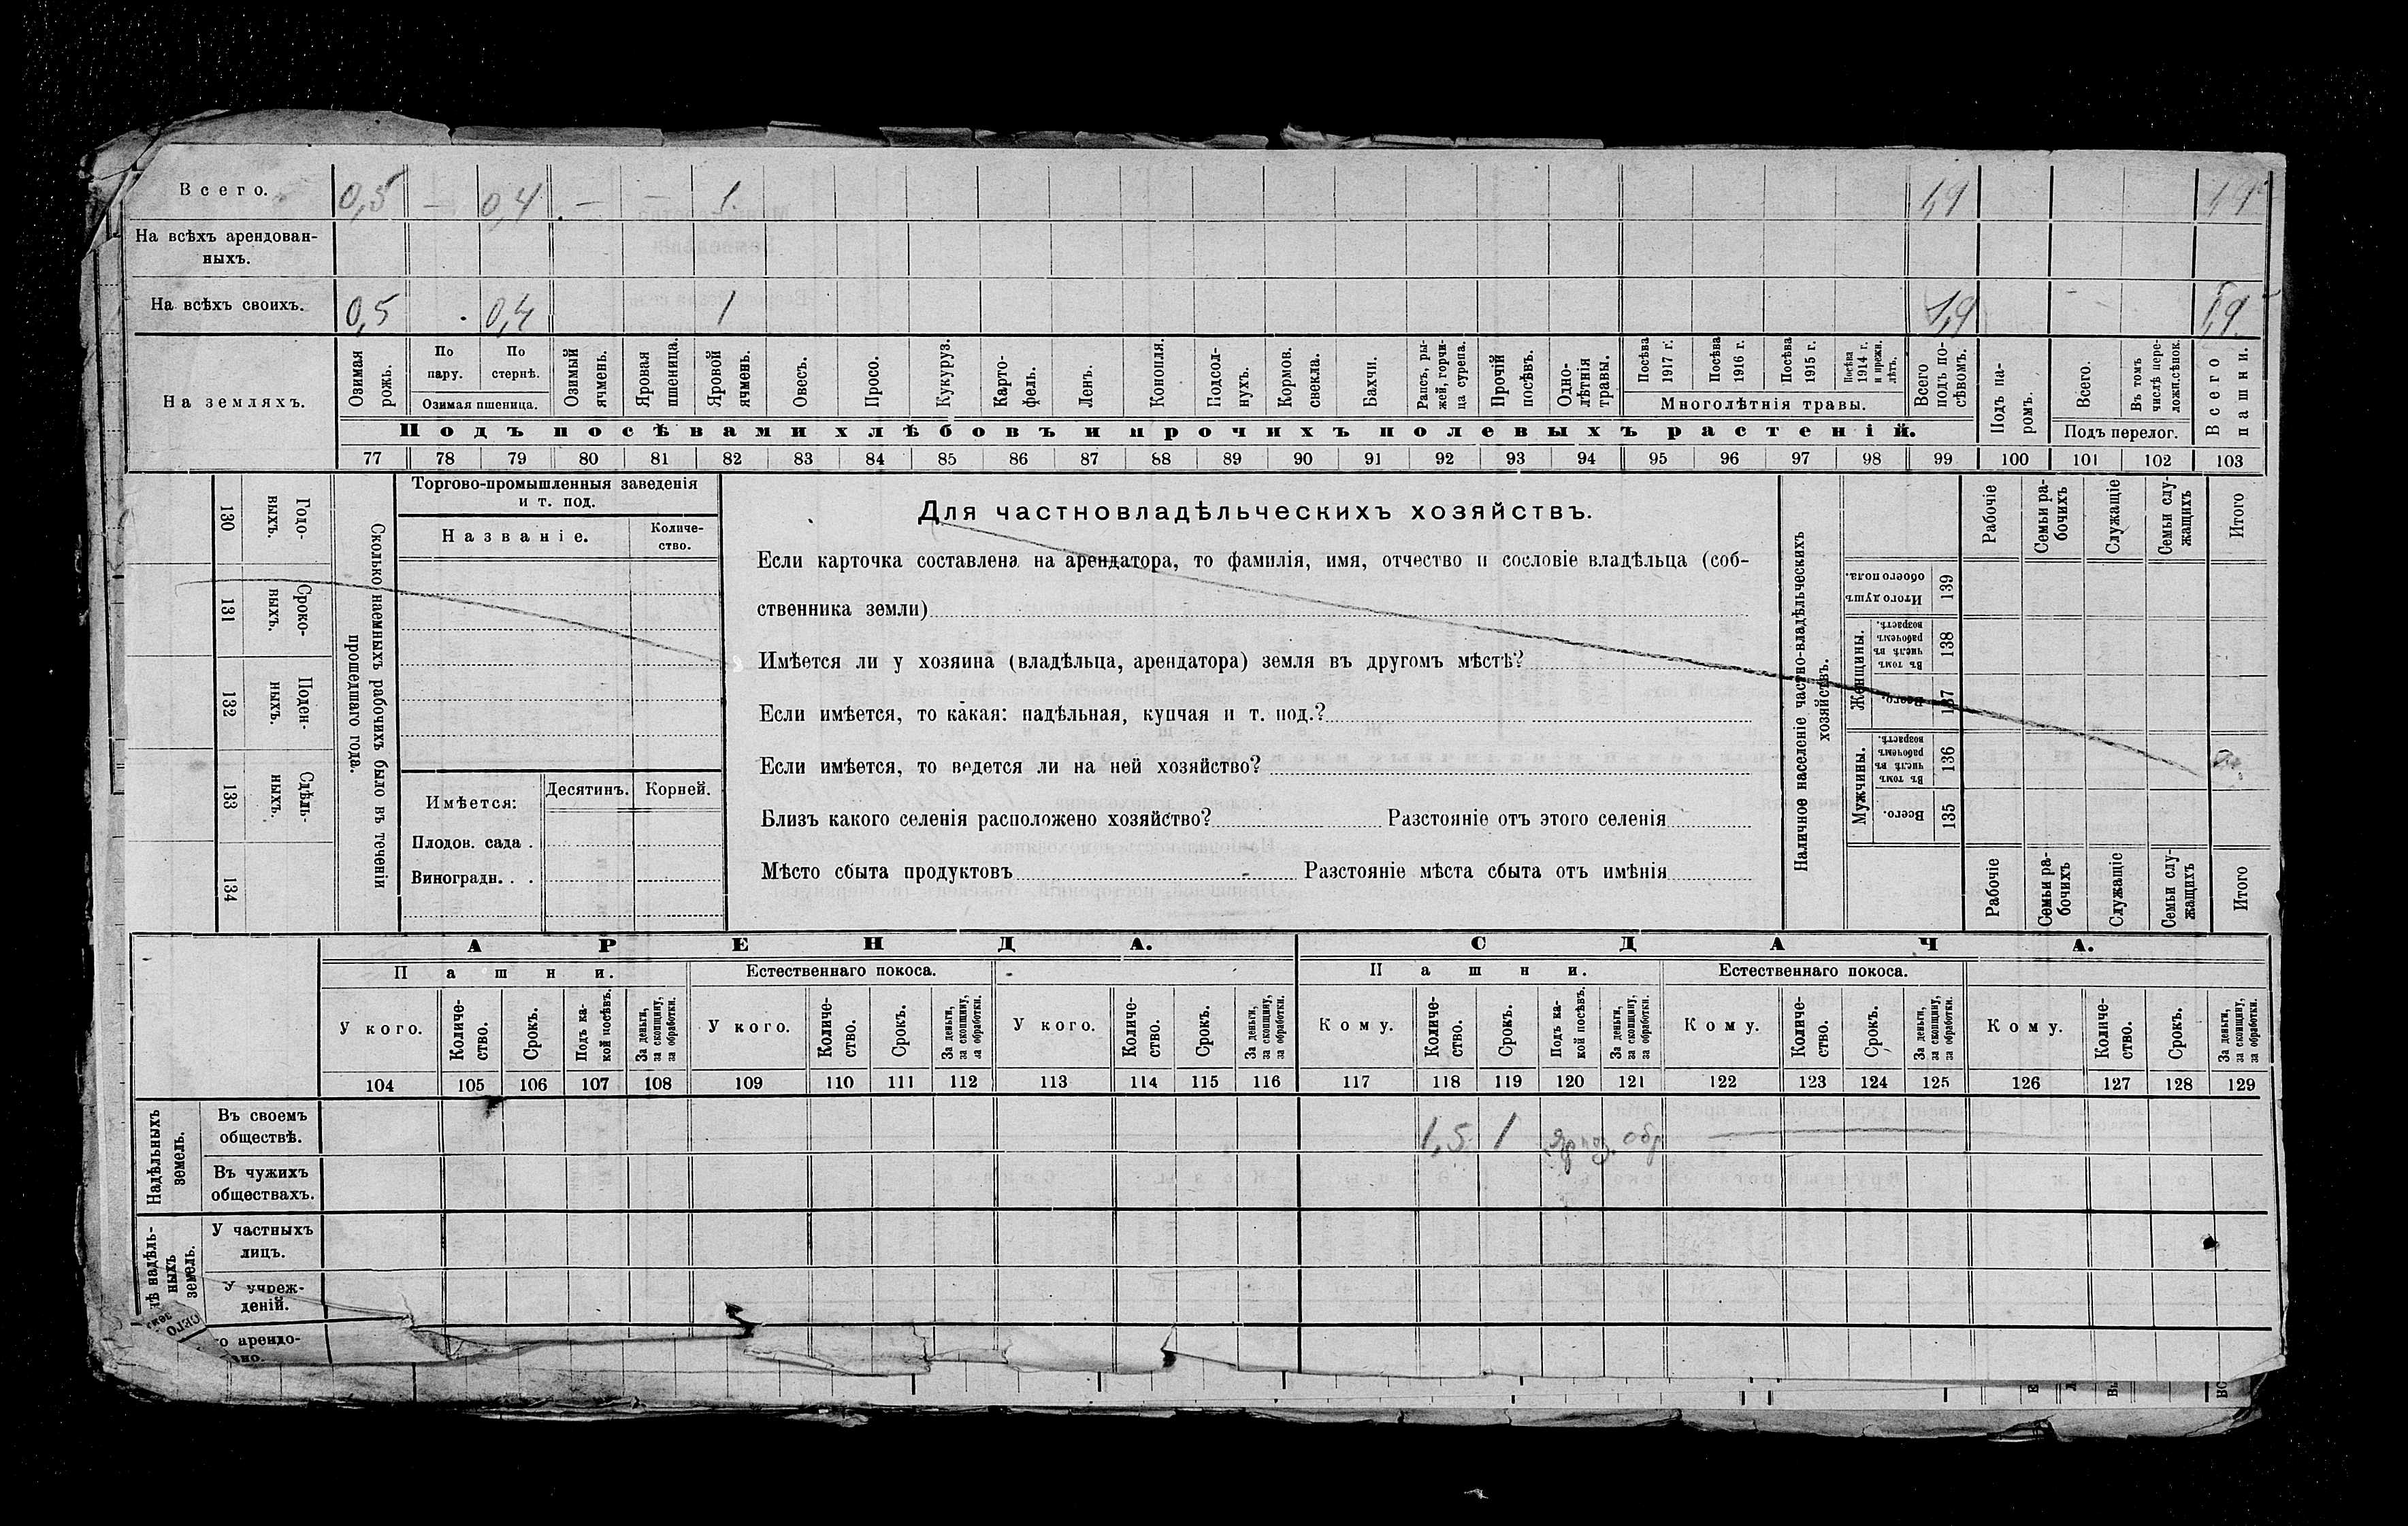 Всего. 0,5 — 0,4 — — 1. 1,9 1,9
На всѣхъ арендован-
ныхъ.
На всѣхъ своихъ. 0,5 0,4 1 1,9 1,9
На земляхъ.
Озимая рожь.
По пару.
По стернѣ.
Озимая пшеница.
Озимый ячмень.
Яровая пшеница.
Яровой ячмень.
Овесъ.
Просо.
Кукуруз.
Карто-
фель.
Ленъ.
Конопля.
Подсол-
нухъ.
Кормов. свекла.
Бахчи.
Рапсъ, ры-
жей, горчи-
ца сурепа.
Прочій посѣвъ.
Одно-
лѣтнія травы.
Посѣва 1917 г.
Посѣва 1916 г.
Посѣва 1915 г.
Посѣва 1914 г. и прежн. лѣтъ.
Многолѣтнія травы.
Всего подъ по-
сѣвомъ.
Подъ па-
ромъ.
Всего.
Въ томъ числѣ пере-
лож.сѣнок.
Подъ перелог.
Всего пашни.
Подъ посѣвами хлѣбовъ и прочихъ полевыхъ растеній.
77 78 79 80 81 82 83 84 85 86 87 88 89 90 91 92 93 94 95 96 97 98 99 100 101 102 103
130 Годо-
ныхъ.
131 Сроко-
ныхъ.
132 Поден-
ныхъ.
133 Сдѣль-
ныхъ.
134
Сколько наемныхъ рабочихъ было въ теченіи
прошедшаго года.
Торгово-промышленныя заведенія
и т. под.
Названіе.
Количе-
ство.
Имѣется: Десятинъ. Корней.
Плодов. сада .
Виноградн. . .
Для частновладѣльческихъ хозяйствъ.
Если карточка составлена на арендатора, то фамилія, имя, отчество и сословіе владѣльца (соб-
ственника земли)
Имѣется ли у хозяина (владѣльца, арендатора) земля въ другомъ мѣстѣ?
Если имѣется, то какая: надѣльная, купчая и т. под.?
Если имѣется, то ведется ли на ней хозяйство?
Близъ какого селенія расположено хозяйство? Разстояніе отъ этого селенія
Мѣсто сбыта продуктовъ Разстояніе мѣста сбыта отъ имѣнія
Наличное населеніе частно-владѣльческихъ
хозяйствъ.
Рабочіе
Семьи ра-
бочихъ
Служащіе
Семьи слу-
жащихъ
Итого
Итого душъ обоего пола. 139
Женщины.
Въ томъ числѣ въ рабочемъ возрастѣ. 138
Всего. 137
Мужчины.
Въ томъ числѣ въ рабочемъ возрастѣ. 136
Всего. 135
Рабочіе
Семьи ра-
бочихъ
Служащіе
Семьи слу-
жащихъ
Итого
АРЕНДА. СДАЧА.
Пашни. Естественнаго покоса. Пашни. Естественнаго покоса.
У кого.
Количе-
ство.
Срокъ.
Подъ ка-
кой посѣвъ.
За деньги,
за скопщину,
за обработки.
У кого.
Количе-
ство.
Срокъ.
За деньги,
за скопщину,
за обработки.
У кого.
Количе-
ство.
Срокъ.
За деньги,
за скопщину,
за обработки.
Кому.
Количе-
ство.
Срокъ.
Подъ ка-
кой посѣвъ.
За деньги,
за скопщину,
за обработки.
Кому.
Количе-
ство.
Срокъ.
За деньги,
за скопщину,
за обработки.
Кому.
Количе-
ство.
Срокъ.
За деньги,
за скопщину,
за обработки.
104 105 106 107 108 109 110 111 112 113 114 115 116 117 118 119 120 121 122 123 124 125 126 127 128 129
Надѣльныхъ
земель.
Въ своемъ
обществѣ. 1,5 1 обр
Въ чужихъ
обществахъ.
надѣль-
ныхъ
земель.
У частныхъ
лицъ.
У учреж-
деній.
арендо-